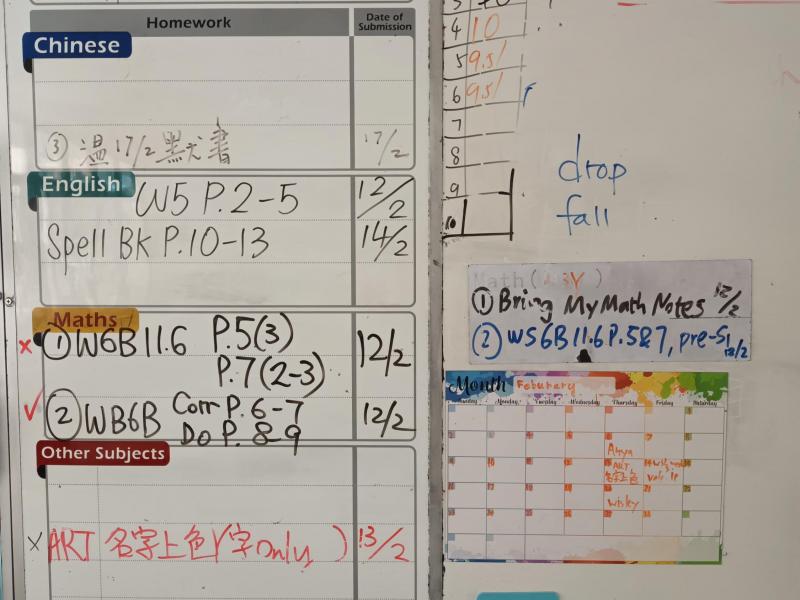 Homework
Date of Submission
Chinese
③ 溫 17/2 黑尤書 17/2
English
W5 P.2-5 12/2
Spell Bk P.10-13 14/2
Maths
① W6B 11.6 P.5(3)
P.7(2-3) 12/2
② WB6B Corr P.6-7
Do P. 8-9 12/2
Other Subjects
ART 名字上色(字only) 13/2
4 10
5 9.5/
6 9.5/
7
8
9
10
drop
fall
Math(
① Bring My Math Notes 12/2
② WS 6B 11.6 P.5&7, pre-S1 12/2
Month Feburary
Monday Tuesday Wednesday Thursday Friday Saturday
ART
名字上色
wisley